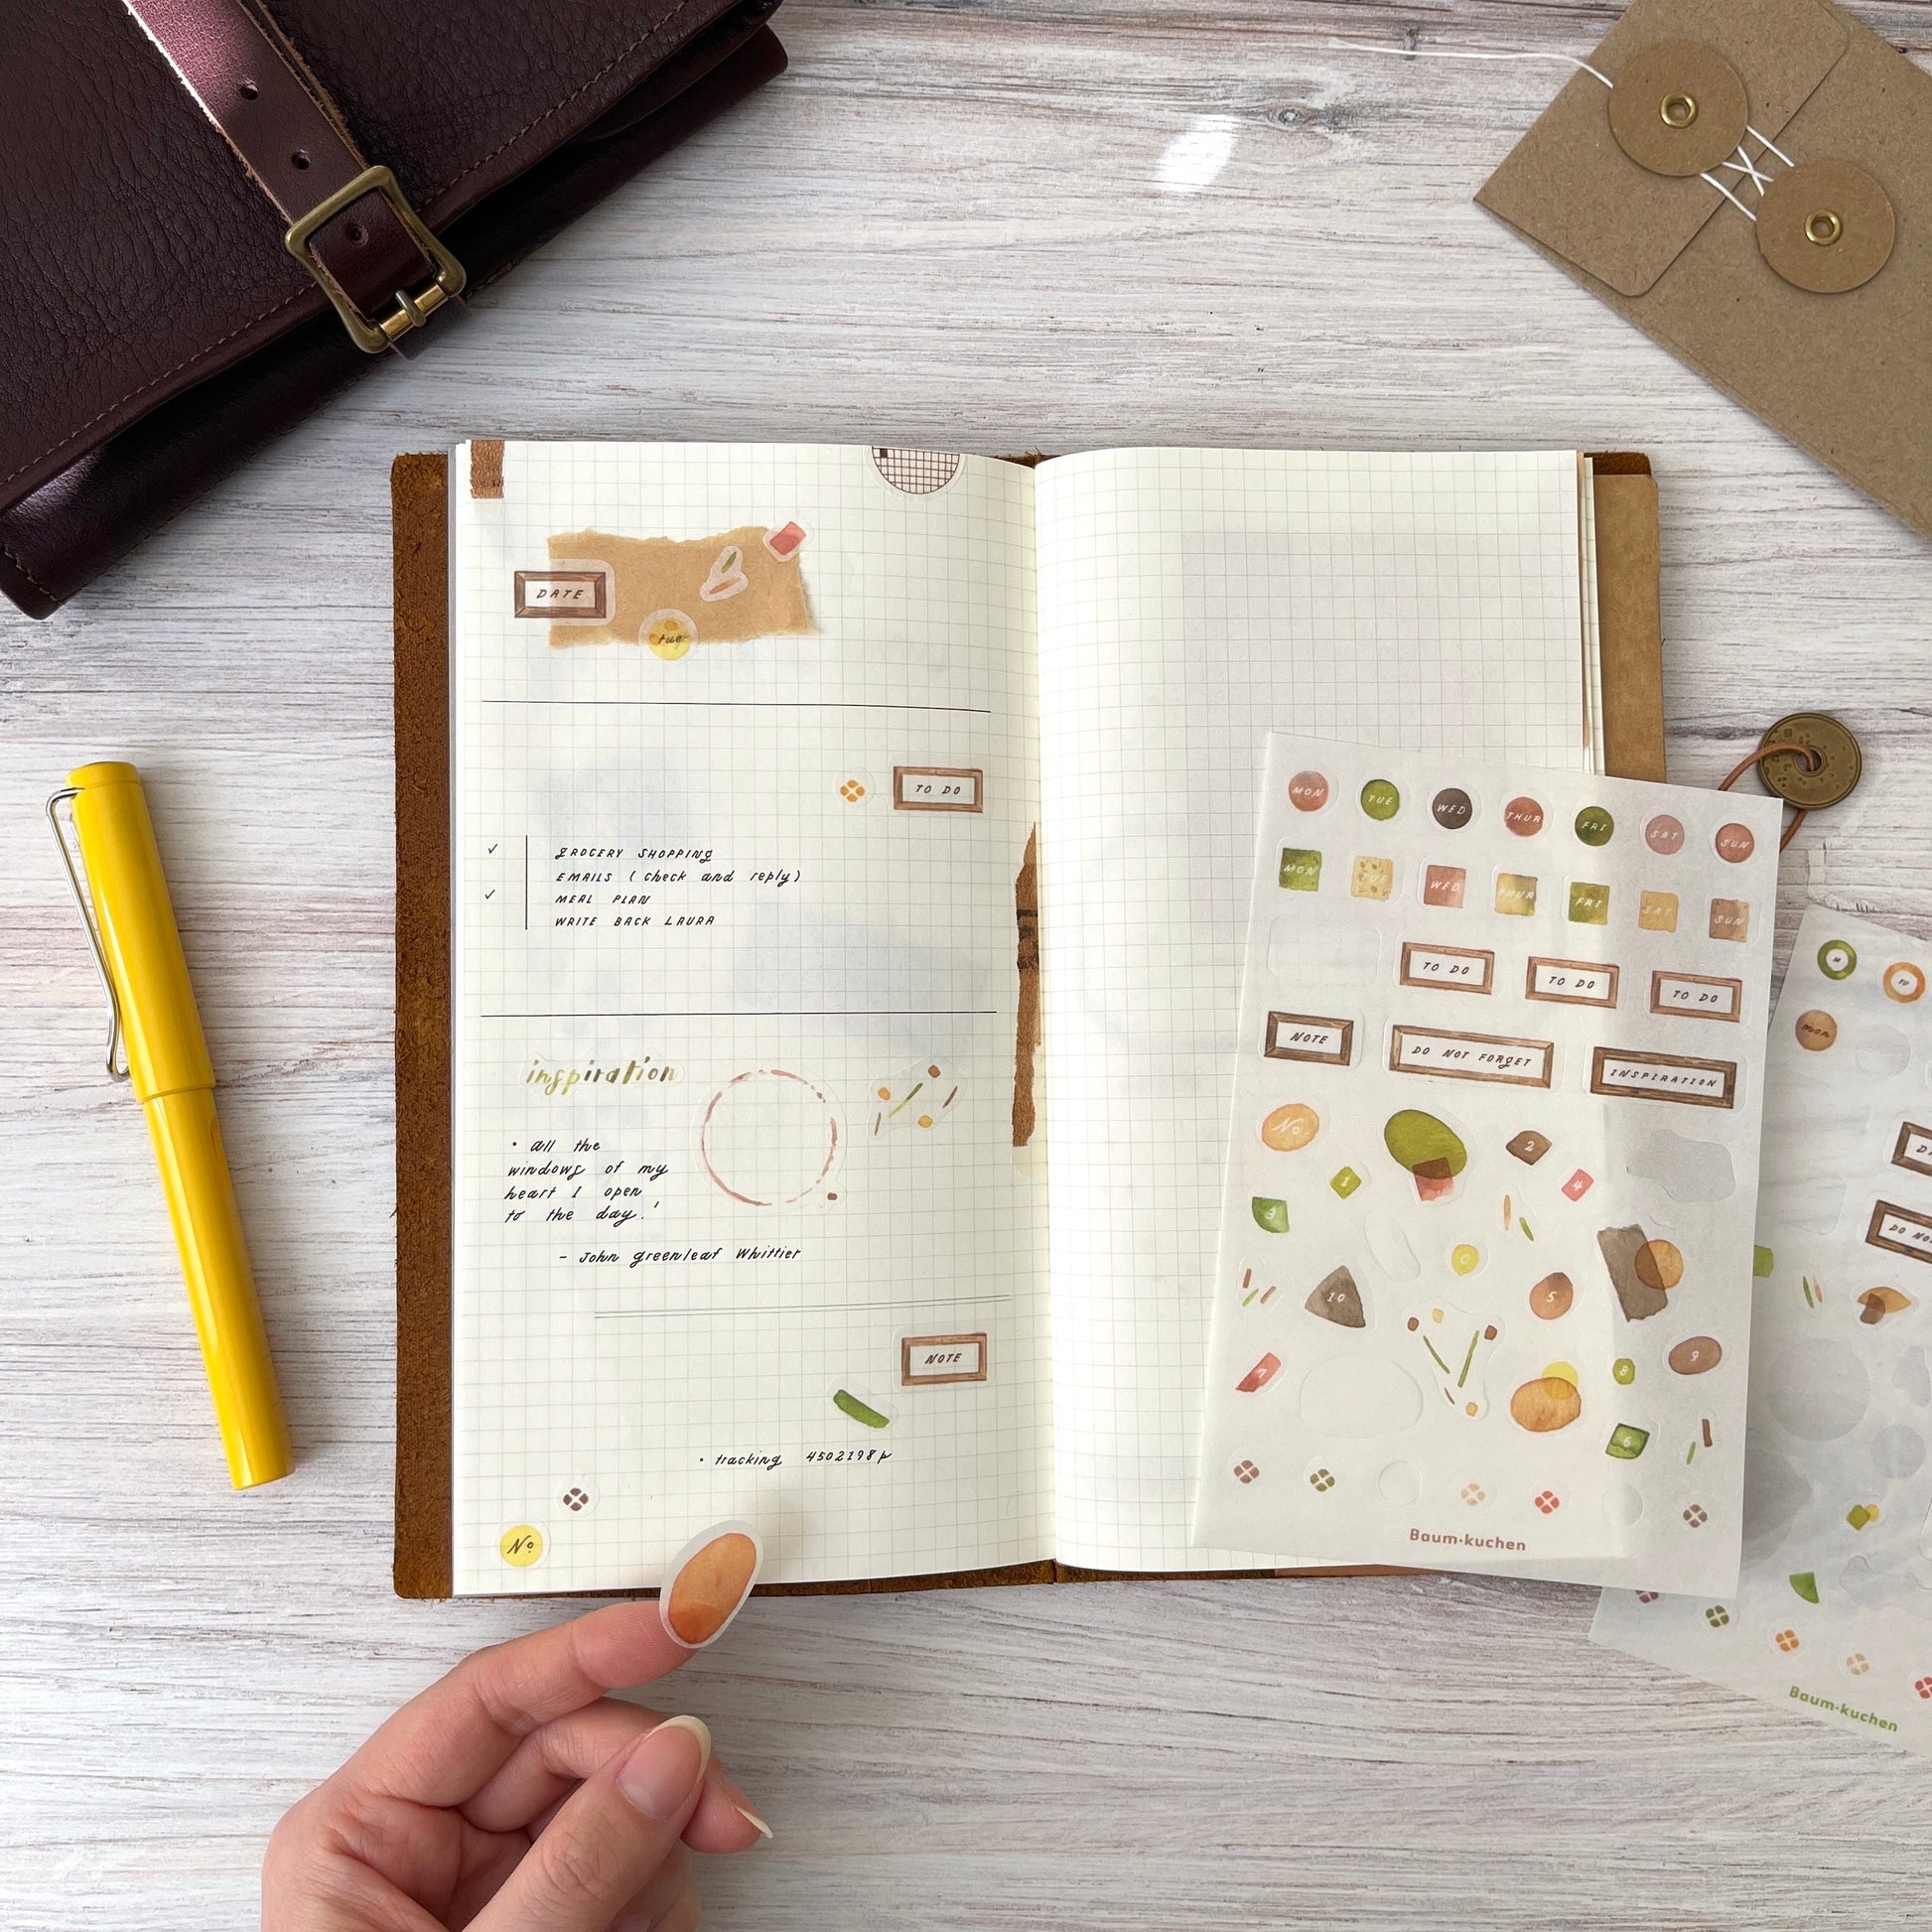 DATE
tue
TO DO
✓ GROCERY SHOPPING
EMAILS (check and reply)
✓ MEAL PLAN
WRITE BACK LAURA
inspiration
• all the
windows of my
heart I open
to the day.'
- John greenleaf Whittier
NOTE
• tracking 4502198p
Nº
MON TUE WED THUR FRI SAT SUN
MON TUE WED THUR FRI SAT SUN
TO DO TO DO TO DO
NOTE DO NOT FORGET INSPIRATION
Nº 2
1 4
3
0
10 5
7 8 9
6
Baum-kuchen
M TU
mon
DO NO
Baum-kuchen